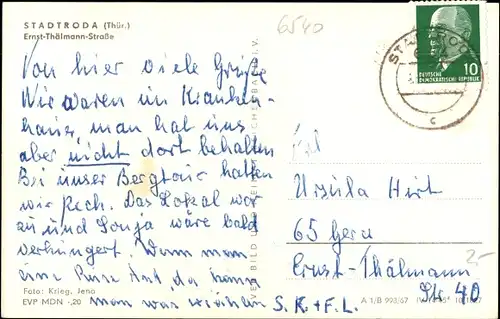 STADTRODA (Thür.)
Ernst-Thälmann-Straße
6540
STADTRODA
10
DEUTSCHE
DEMOKRATISCHE REPUBLIK
c
Von hier viele Grüße
Wir waren im Kranken-
haus, man hat uns
aber nicht dort behalten
Bei unser Bergtour hatten
wir Pech. Das Lokal war
zu und Sonja wäre bald
verhungert. Wenn man
eine Reise tut, da kann
man was erzählen S. K. + F. L.
Frl.
Ursula Hirt
65 Gera
Ernst-Thälmann
Str 40
2-
VEB BILD UND HEIMAT REICHENBACH I. V.
Foto: Krieg, Jena
EVP MDN -,20
A 1/B 993/67